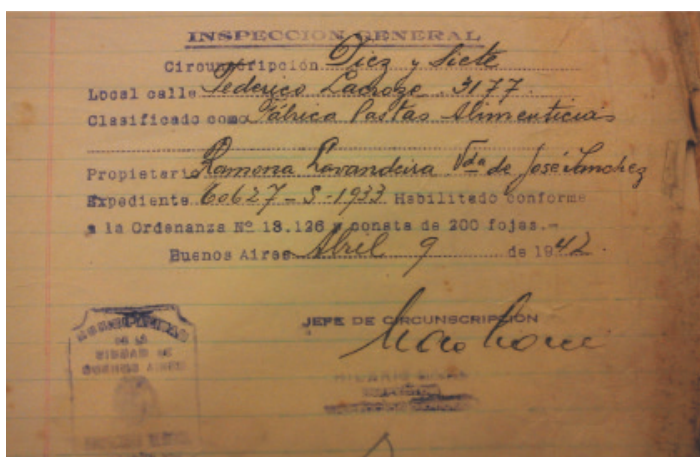 INSPECCION GENERAL
Circunscripción Diez y Siete
Local calle Federico Lacroze . 3177.
Clasificado como Fábrica Pastas Alimenticias
Propietario Ramona Lavandeira Vda de José Sanchez
Expediente 60627-S-1933 Habilitado conforme
a la Ordenanza Nº 13.126 y consta de 200 fojas.-
Buenos Aires Abril 9 de 1942.
JEFE DE CIRCUNSCRIPCIÓN
MUNICIPALIDAD
DE LA
CIUDAD DE
BUENOS AIRES